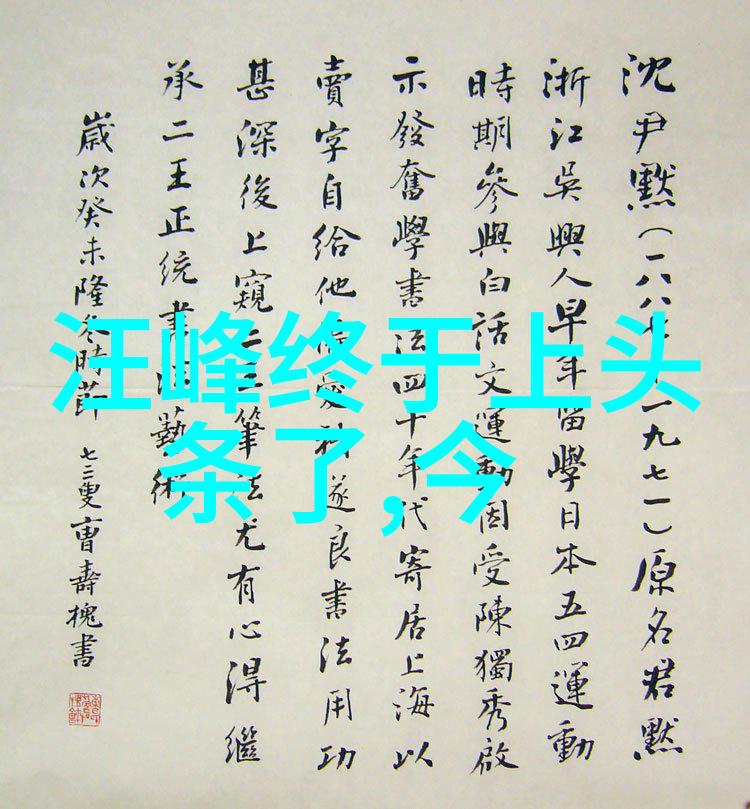 汪峰终于上头
条了,今
沈尹默(一八八七一九七一)原名君默
浙江吳興人早年留學日本五四運動
時期參與白話文運動因受陳獨秀啟
示發奮學書法四十年代寄居上海以
賣字自給他愛褚遂良書法用功
甚深後上窺二王筆法尤有心得繼
承二王正統書法藝術
歲次癸未隆冬時節 七三叟曹壽槐書